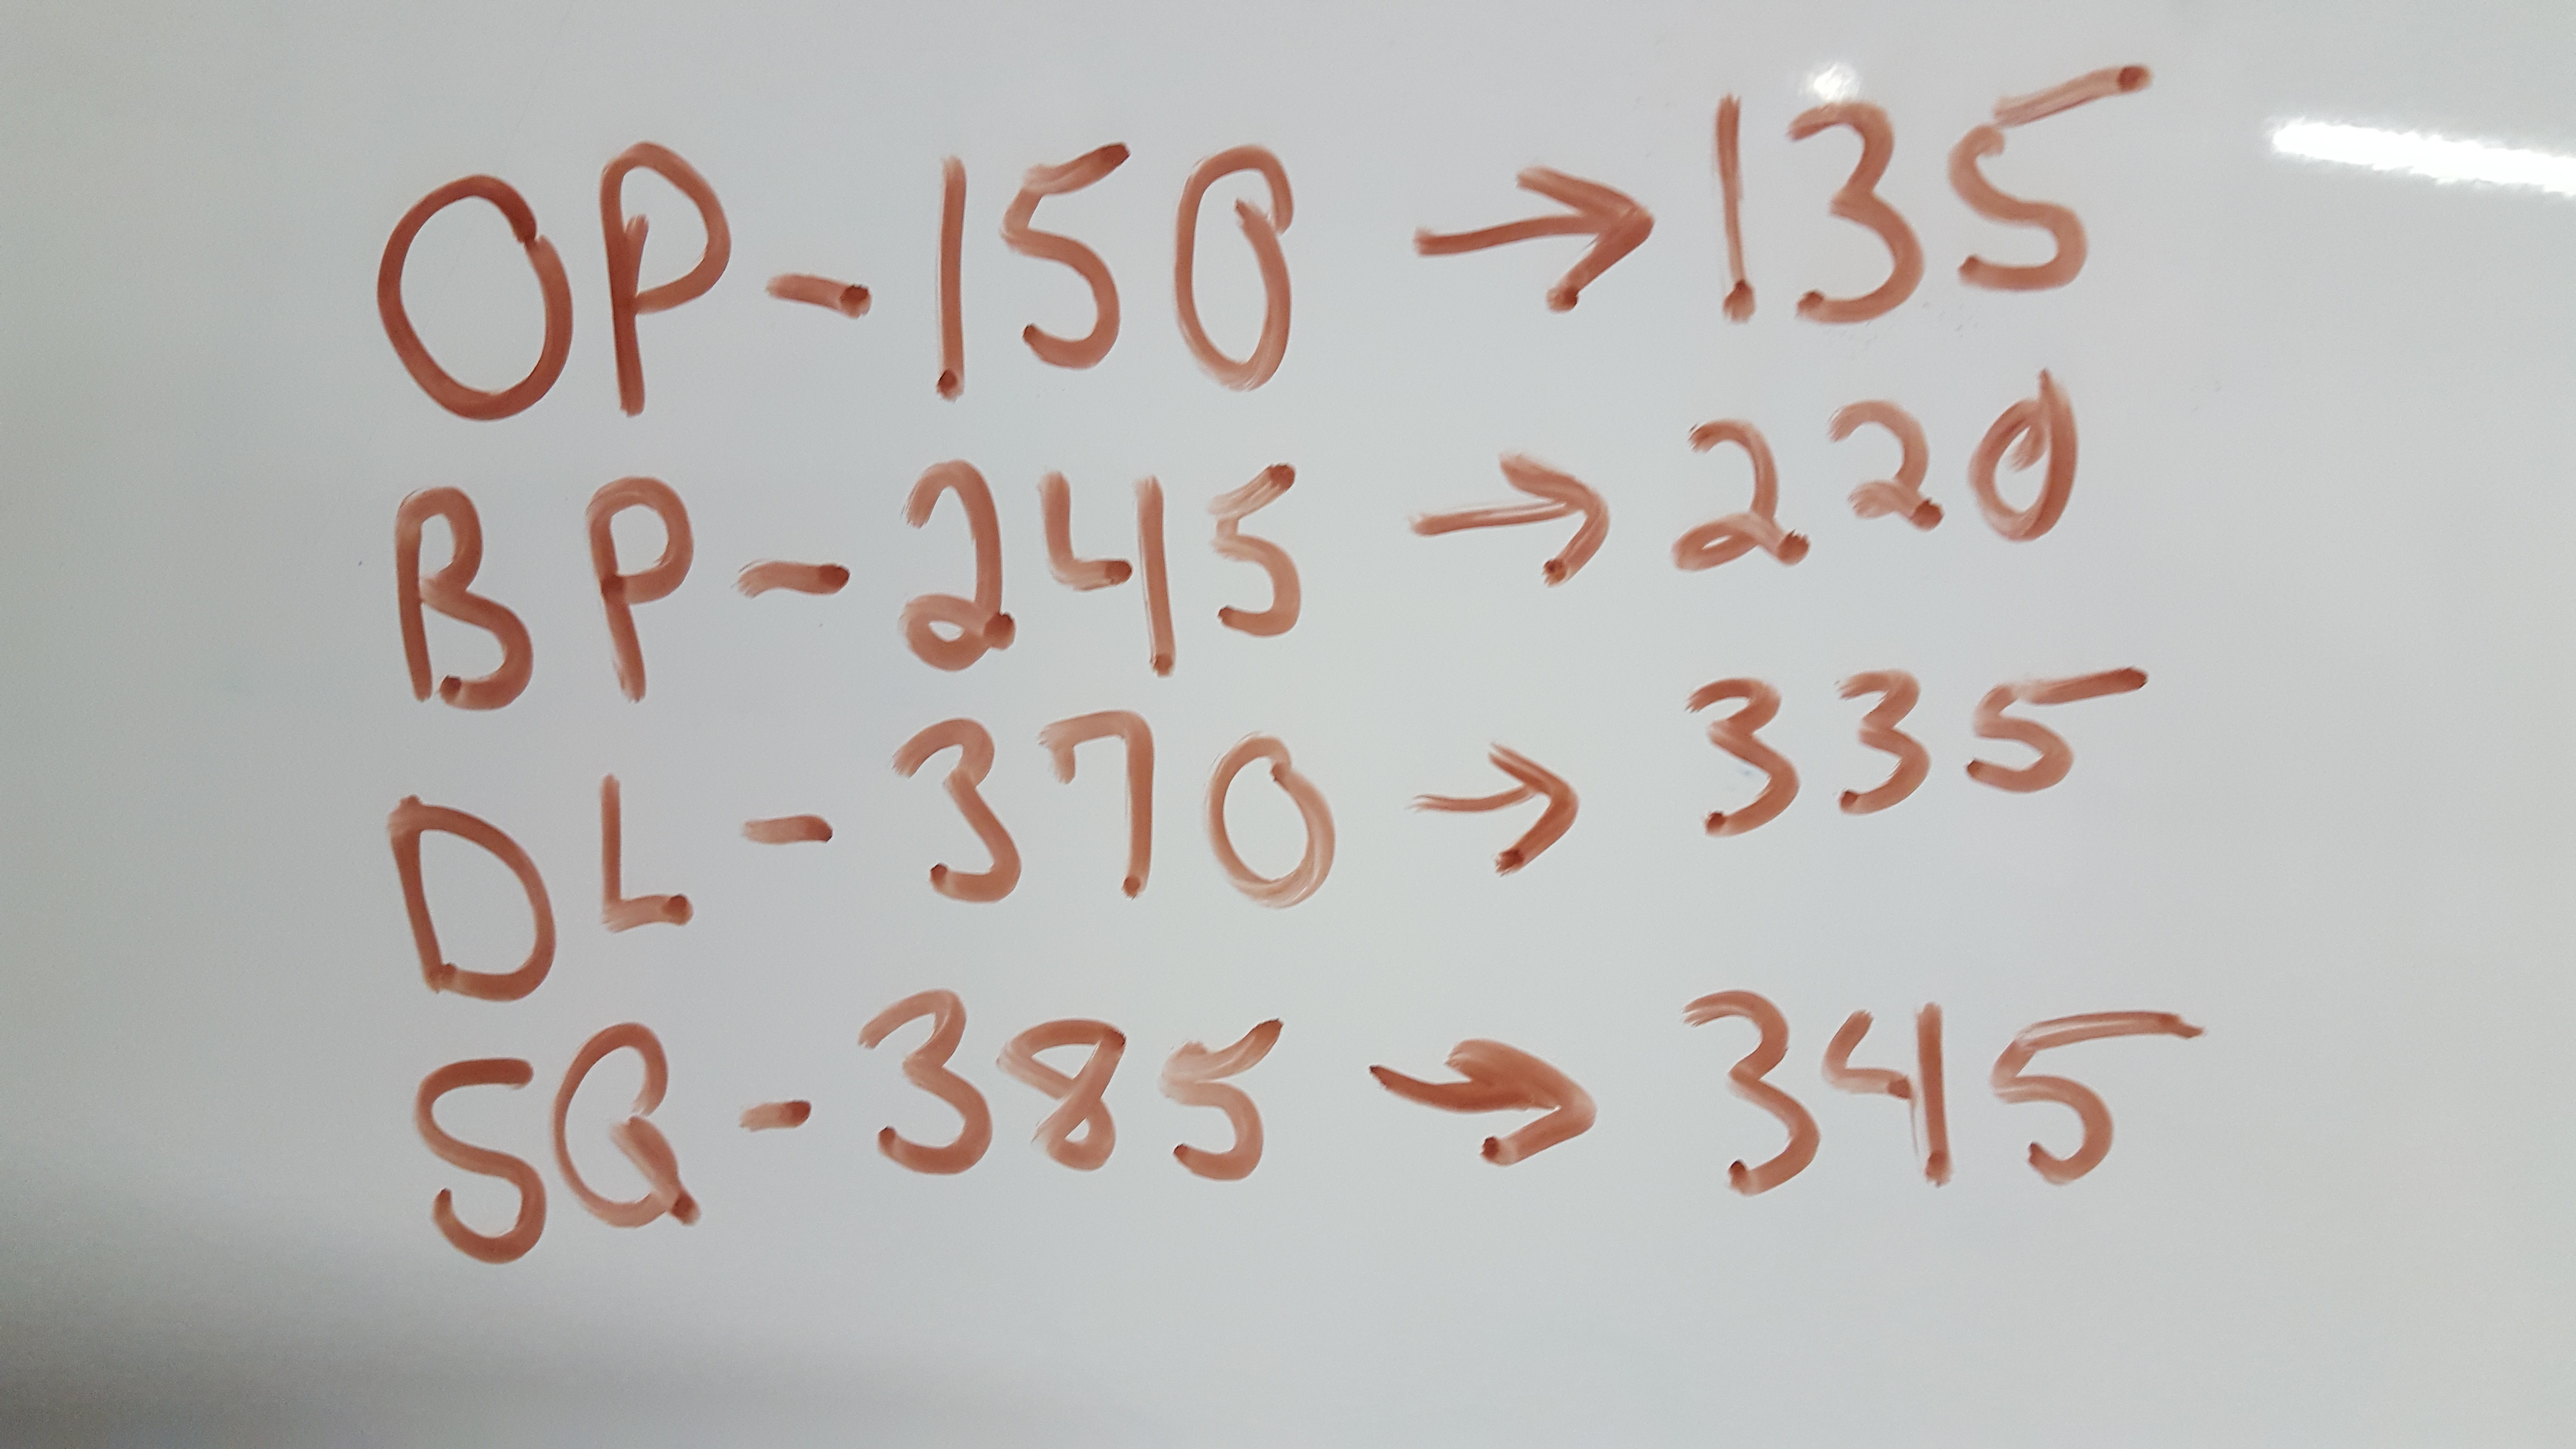 OP - 150 → 135
BP - 245 → 220
DL - 370 → 335
SQ - 385 → 345